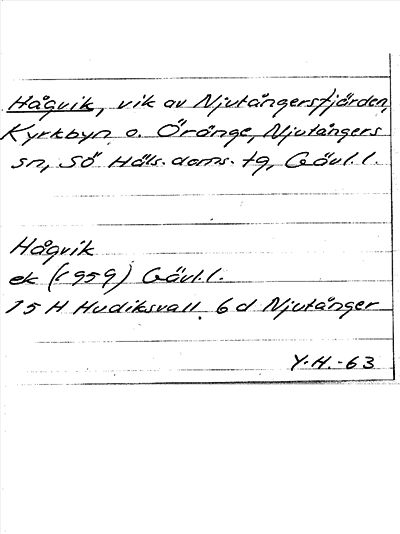 Hågvik, vik av Njutångersfjärden,
Kyrkbyn o. Öränge, Njutångers
sn, Sö Häls. doms. tg, Gävl.l.
Hågvik
ek (1959) Gävl.l.
15 H Hudiksvall 6 d Njutånger
Y.H.-63